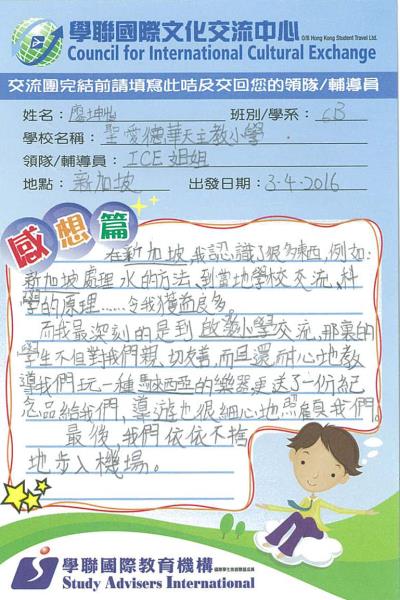 學聯國際文化交流中心 O/B Hong Kong Student Travel Ltd.
Council for International Cultural Exchange
交流團完結前請填寫此咭及交回您的領隊/輔導員
姓名：廖坤怡 班別/學系：6B
學校名稱：聖愛德華天主教小學
領隊/輔導員：ICE姐姐
地點：新加坡 出發日期：3.4.2016
感想篇
在新加坡我認識了很多東西,例如:
新加坡處理水的方法、到當地學校交流、科
學的原理……令我獲益良多。
而我最深刻的是到啟發小學交流,那裏的
學生不但對我們親切友善,而且還耐心地教
導我們玩一種馬來西亞的樂器更送了一份紀
念品給我們,導遊也很細心地照顧我們。
最後,我們依依不捨
地步入機場。
學聯國際教育機構
Study Advisers International